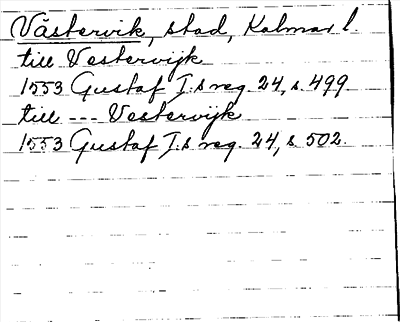 Västervik, stad, Kalmar l.
till Vestervijk
1553 Gustaf I.s reg. 24, s. 499.
till --- Vestervijk
1553 Gustaf I.s reg. 24, s. 502.